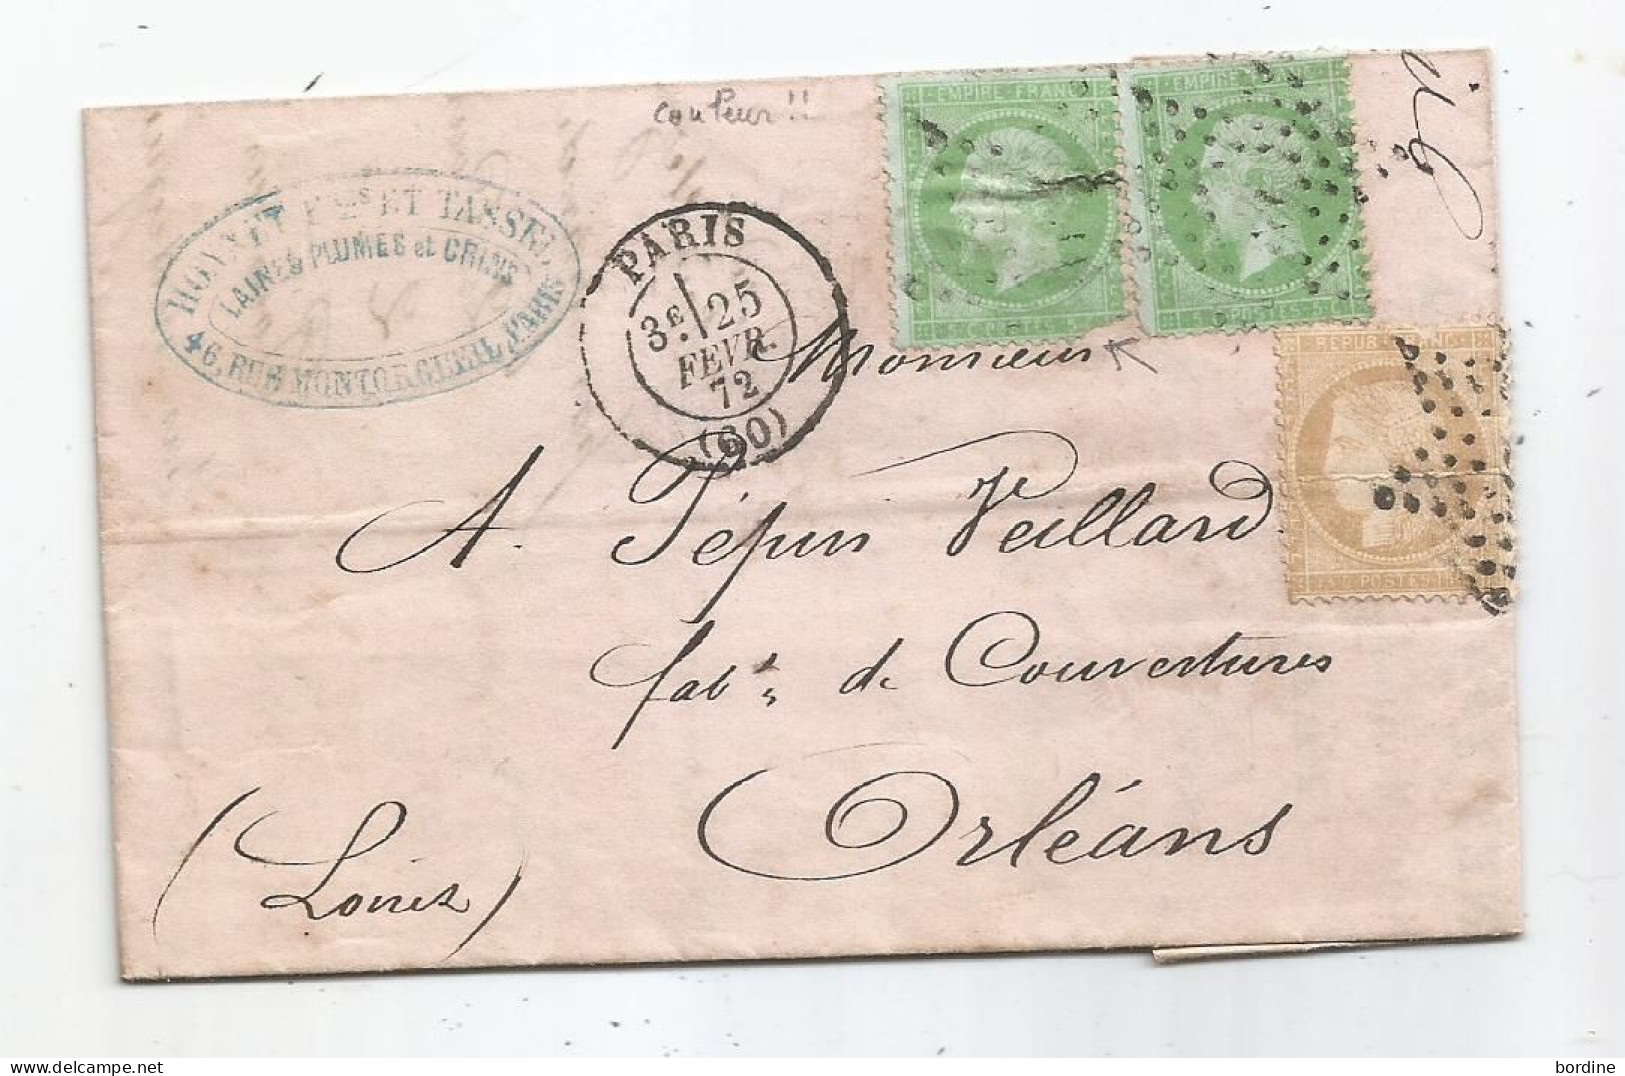 couleur !!
EMPIRE FRANC
EMPIRE
5 C POSTES 5
5 C POSTES 5
REPUB FRANC
15 C POSTES 15
ET TANSSEL
LAINES PLUMES et CRINS
46, RUE MONTORGUEIL, PARIS
PARIS
3E 25
FEVR.
72
(60)
Monsieur
A. Pépin Veillard
fabt de Couvertures
Orléans
(Loiret)
bordine